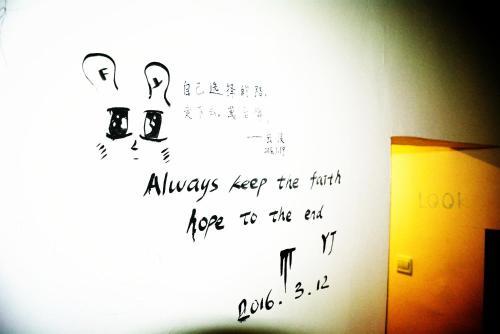 F Y
自己选择的路,
Always keep the faith
hope to the end
YJ
2016. 3. 12
LOOK